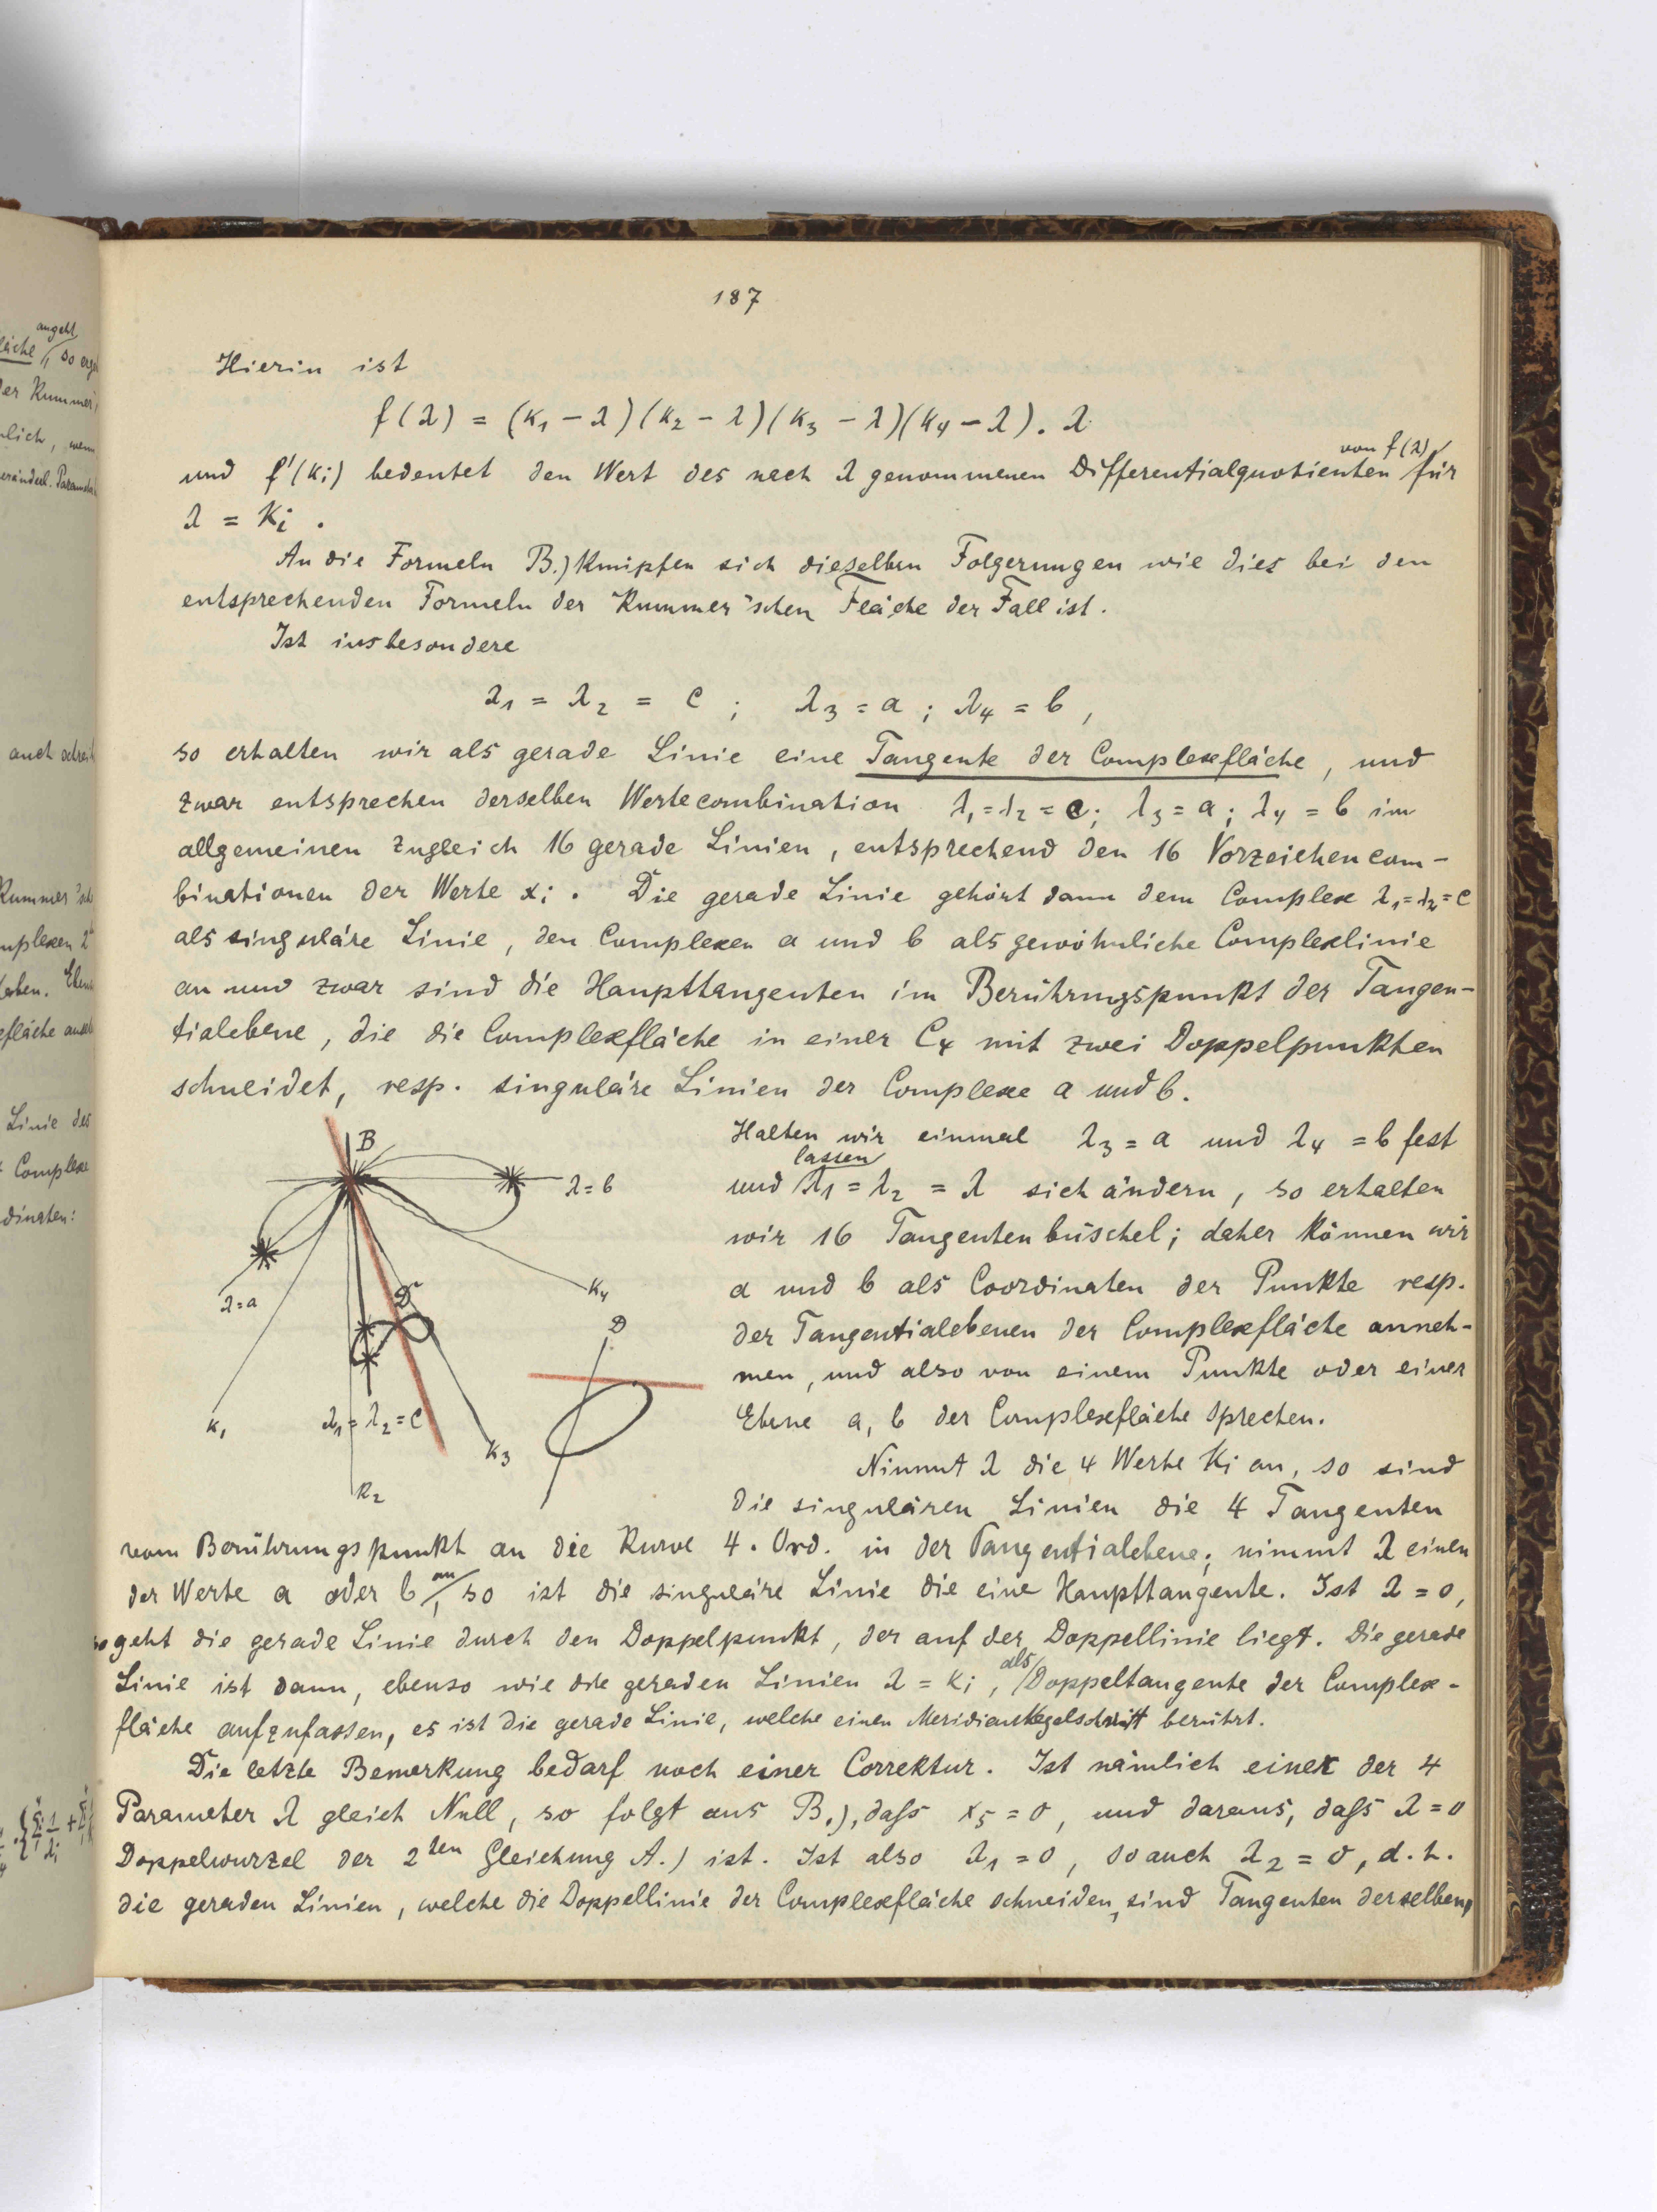 187
Hierin ist
f(λ) = (k₁ - λ)(k₂ - λ)(k₃ - λ)(k₄ - λ). λ
von f(λ)
und f'(ki) bedeutet den Wert des nach λ genommenen Differentialquotienten für
λ = Ki.
An die Formeln B.) knüpfen sich dieselben Folgerungen wie dies bei den
entsprechenden Formeln der Kummer'schen Fläche der Fall ist.
Ist insbesondere
λ₁ = λ₂ = c ; λ₃ = a ; λ₄ = b ,
so erhalten wir als gerade Linie eine Tangente der Complexfläche, und
zwar entsprechen derselben Wertecombination λ₁=λ₂ = c; λ₃ = a; λ₄ = b im
allgemeinen zugleich 16 gerade Linien, entsprechend den 16 Vorzeichencom-
binationen der Werte xi. Die gerade Linie gehört dann dem Complex λ₁=λ₂=c
als singuläre Linie, den Complexen a und b als gewöhnliche Complexlinie
an und zwar sind die Haupttangenten im Berührungspunkt der Tangen-
tialebene, die die Complexfläche in einer C₄ mit zwei Doppelpunkten
schneidet, resp. singuläre Linien der Complexe a und b.
B
λ=b
λ=a
K₄
D
D
K₁
λ₁ = λ₂ = c
K₃
K₂
Halten wir einmal λ₃ = a und λ₄ = b fest
lassen
und λ₁ = λ₂ = λ sich ändern, so erhalten
wir 16 Tangentenbüschel; daher können wir
a und b als Coordinaten der Punkte resp.
der Tangentialebenen der Complexfläche anneh-
men, und also von einem Punkte oder einer
Ebene a, b der Complexfläche sprechen.
Nimmt λ die 4 Werte Ki an, so sind
die singulären Linien die 4 Tangenten
vom Berührungspunkt an die Kurve 4. Ord. in der Tangentialebene; nimmt λ einen
der Werte a oder b an, so ist die singuläre Linie die eine Haupttangente. Ist λ = 0,
so geht die gerade Linie durch den Doppelpunkt, der auf der Doppellinie liegt. Die gerade
Linie ist dann, ebenso wie die geraden Linien λ = Ki, als Doppeltangente der Complex-
fläche aufzufassen, es ist die gerade Linie, welche einen Meridiankegelschnitt berührt.
Die letzte Bemerkung bedarf noch einer Correktur. Ist nämlich einer der 4
Parameter λ gleich Null, so folgt aus B.), daſs x₅ = 0, und daraus, daſs λ = 0
Doppelwurzel der 2ten Gleichung A.) ist. Ist also λ₁ = 0, so auch λ₂ = 0, d.h.
die geraden Linien, welche die Doppellinie der Complexfläche schneiden, sind Tangenten derselben,
angeht
so erge
der Kummer
nlich, wenn
auch schrei
Kummer'sch
mplexen 2
Linie des
Complex
dinaten: